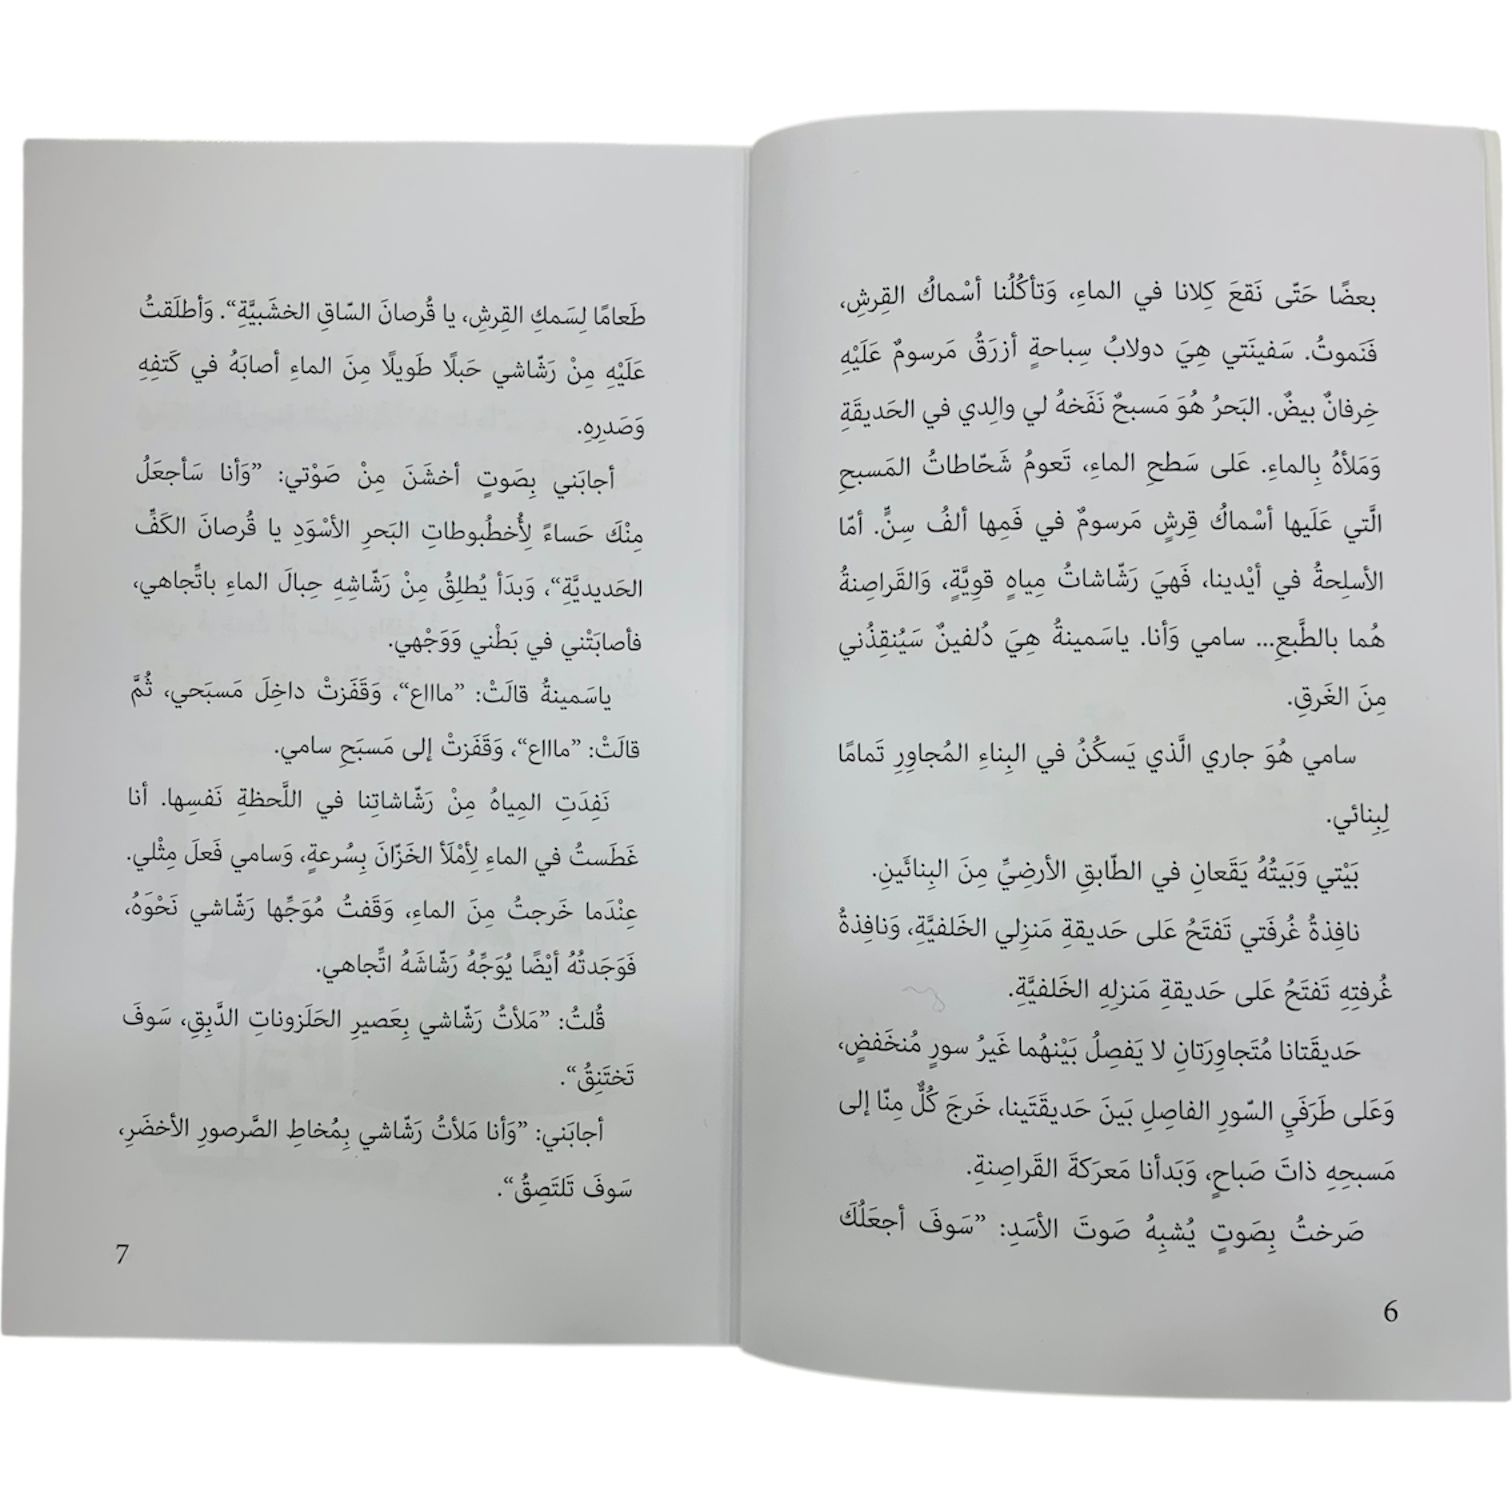 بعضًا حَتّى نَقعَ كِلانا في الماءِ، وَتأكُلُنا أسْماكُ القِرشِ،
فَنَموتُ. سَفينَتي هِيَ دولابُ سِباحةٍ أزرَقُ مَرسومٌ عَلَيْهِ
خِرفانٌ بيضٌ. البَحرُ هُوَ مَسبحٌ نَفَخهُ لي والِدي في الحَديقَةِ
وَمَلأهُ بِالماءِ. عَلى سَطحِ الماءِ، تَعومُ شَحّاطاتُ المَسبحِ
الَّتي عَلَيها أسْماكُ قِرشٍ مَرسومٌ في فَمِها ألفُ سِنٍّ. أمّا
الأسلِحةُ في أيْدينا، فَهيَ رَشّاشاتُ مِياهٍ قويَّةٍ، وَالقَراصنةُ
هُما بالطَّبعِ... سامي وَأنا. ياسَمينةُ هِيَ دُلفينٌ سَيُنقِذُني
مِنَ الغَرقِ.
سامي هُوَ جاري الَّذي يَسكُنُ في البِناءِ المُجاوِرِ تَمامًا
لِبِنائي.
بَيْتي وَبَيتُهُ يَقَعانِ في الطّابقِ الأرضِيِّ مِنَ البِنائَينِ.
نافِذةُ غُرفَتي تَفتَحُ عَلى حَديقةِ مَنزِلي الخَلفيَّةِ، وَنافِذةُ
غُرفتِهِ تَفتَحُ عَلى حَديقةِ مَنزلِهِ الخَلفيَّةِ.
حَديقَتانا مُتَجاوِرَتانِ لا يَفصِلُ بَيْنهُما غَيرُ سورٍ مُنخَفضٍ،
وَعَلى طَرَفَيِ السّورِ الفاصِلِ بَينَ حَديقَتَينا، خَرجَ كُلٌّ مِنّا إلى
مَسبحِهِ ذاتَ صَباحٍ، وَبَدأنا مَعرَكةَ القَراصِنةِ.
صَرختُ بِصَوتٍ يُشبِهُ صَوتَ الأسَدِ: ”سَوفَ أجعَلُكَ
6
طَعامًا لِسَمكِ القِرشِ، يا قُرصانَ السّاقِ الخشَبيَّةِ“. وَأطلَقتُ
عَلَيْهِ مِنْ رَشّاشي حَبلًا طَويلًا مِنَ الماءِ أصابَهُ في كَتفِهِ
وَصَدرِهِ.
أجابَني بِصَوتٍ أخشَنَ مِنْ صَوْتي: ”وَأنا سَأجعَلُ
مِنْكَ حَساءً لِأُخطُبوطاتِ البَحرِ الأسْوَدِ يا قُرصانَ الكَفِّ
الحَديديَّةِ“، وَبَدَأ يُطلِقُ مِنْ رَشّاشِهِ حِبالَ الماءِ باتِّجاهي،
فأصابَتْني في بَطْني وَوَجْهي.
ياسَمينةُ قالَتْ: ”ماااع“، وَقَفَزتْ داخِلَ مَسبَحي، ثُمَّ
قالَتْ: ”ماااع“، وَقَفَزتْ إلى مَسبَحِ سامي.
نَفِدَتِ المِياهُ مِنْ رَشّاشاتِنا في اللَّحظةِ نَفسِها. أنا
غَطَستُ في الماءِ لِأمْلَأ الخَزّانَ بِسُرعةٍ، وَسامي فَعلَ مِثْلي.
عِنْدَما خَرجتُ مِنَ الماءِ، وَقَفتُ مُوَجِّها رَشّاشي نَحْوَهُ،
فَوَجَدتُهُ أيْضًا يُوَجِّهُ رَشّاشَهُ اتِّجاهي.
قُلتُ: ”مَلأتُ رَشّاشي بِعَصيرِ الحَلَزوناتِ الدَّبِقِ، سَوفَ
تَختَنِقُ“.
أجابَني: ”وَأنا مَلأتُ رَشّاشي بِمُخاطِ الصَّرصورِ الأخضَرِ،
سَوفَ تَلتَصِقُ“.
7